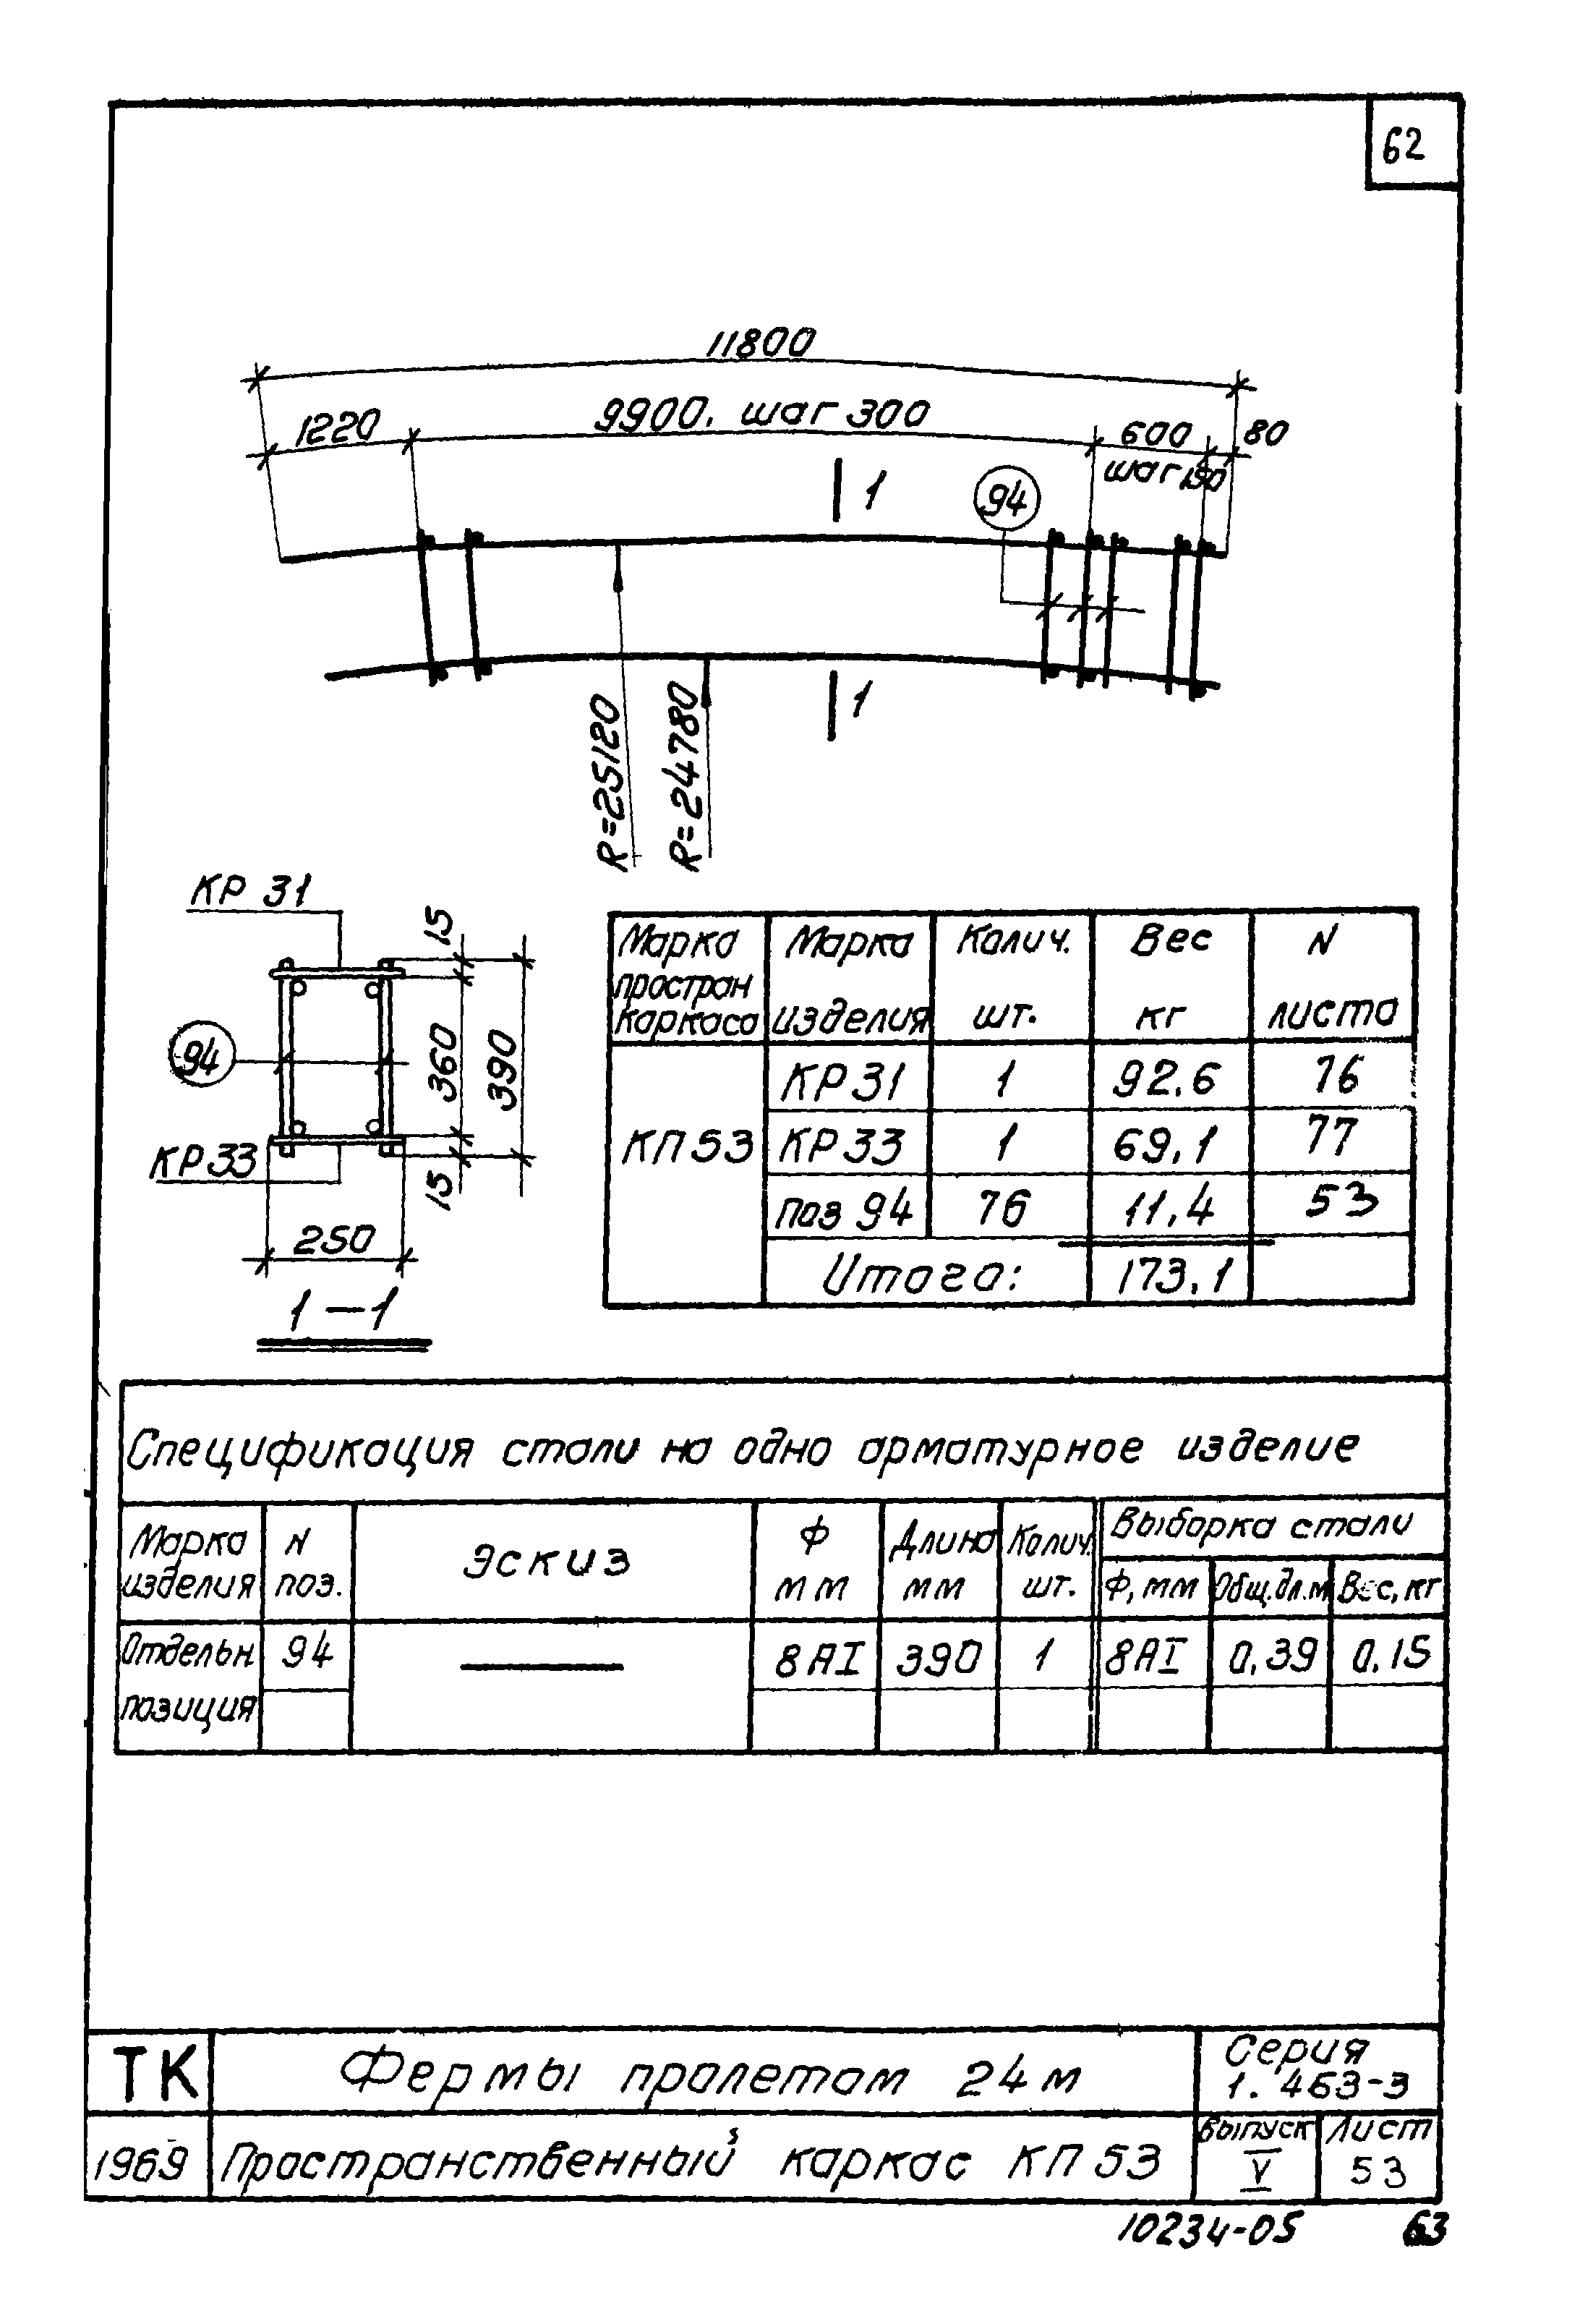 62
11800
1220
9900, шаг 300
600
80
шаг 150
1
94
1
R=25120
R=24780
КР 31
15
94
360
390
КР33
15
250
1-1
Марка простран каркаса | Марка изделия | Колич. шт. | Вес кг | N листа
КП53 | КР31 | 1 | 92,6 | 76
КР33 | 1 | 69,1 | 77
поз 94 | 76 | 11,4 | 53
Итого: 173,1
Спецификация стали на одно арматурное изделие
Марка изделия | N поз. | Эскиз | Ф мм | Длина мм | Колич. шт. | Выборка стали
Ф, мм | Общ.дл.м | Вес, кг
Отдельн позиция | 94 | 8АI | 390 | 1 | 8АI | 0,39 | 0,15
ТК
Фермы пролетом 24м
Серия
1.463-3
1969
Пространственный каркас КП53
выпуск
V
Лист
53
10234-05
63